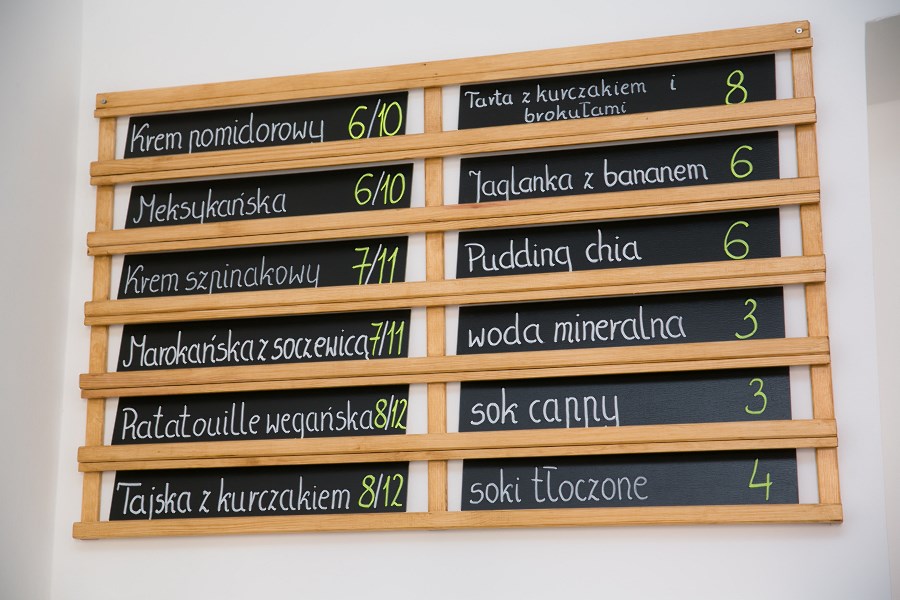 Krem pomidorowy 6/10
Meksykańska 6/10
Krem szpinakowy 7/11
Marokańska z soczewicą 7/11
Ratatouille wegańska 8/12
Tajska z kurczakiem 8/12
Tarta z kurczakiem i 8
brokułami
Jaglanka z bananem 6
Pudding chia 6
woda mineralna 3
sok cappy 3
soki tłoczone 4